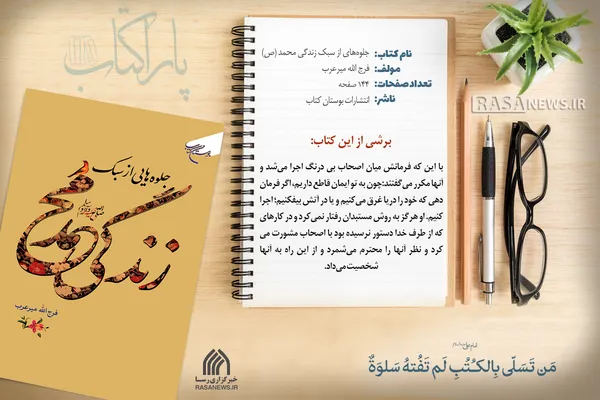 پاراکتاب
RASANEWS.IR
نام کتاب: جلوه‌های از سبک زندگی محمد (ص)
مولف: فرج الله میرعرب
تعداد صفحات: ۱۴۴ صفحه
ناشر: انتشارات بوستان کتاب
برشی از این کتاب:
با این که فرمانش میان اصحاب بی درنگ اجرا می‌شد و
آنها مکرر می‌گفتند: چون به تو ایمان قاطع داریم، اگر فرمان
دهی که خود را دریا غرق می‌کنیم و یا در آتش بیفکنیم؛ اجرا
کنیم. او هرگز به روش مستبدان رفتار نمی‌کرد و در کارهای
که از طرف خدا دستور نرسیده بود با اصحاب مشورت می
کرد و نظر آنها را محترم می‌شمرد و از این راه به آنها
شخصیت می‌داد.
جلوه‌هایی از سبک
زندگی محمد
فرج الله میرعرب
خبرگزاری رسا
RASANEWS.IR
مَن تَسَلّی بِالکُتُبِ لَم تَفُتهُ سَلوَةٌ